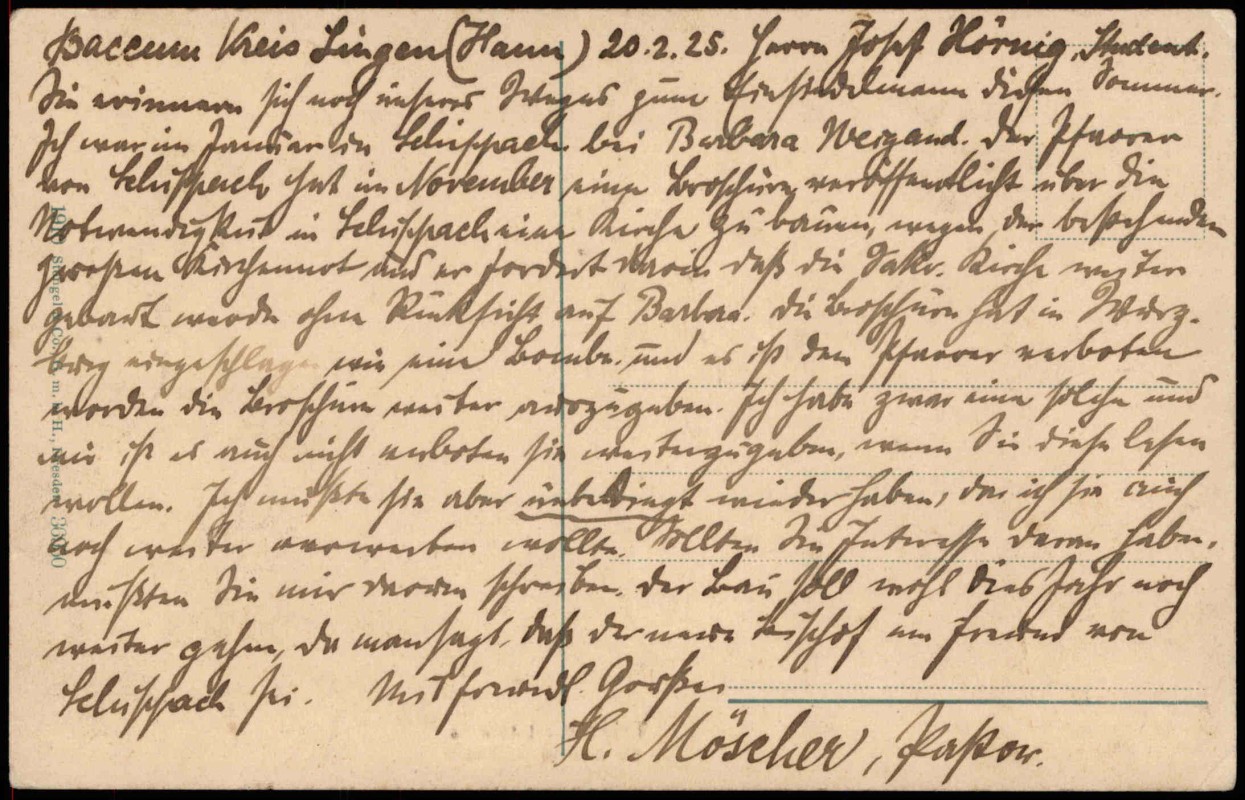 Baccum Kreis Lingen (Hann) 20.2.25. Herrn Josef Hörnig, Student.
Sie erinnern sich noch unseres Weges zum Einsiedelmann diesen Sommer.
Ich war im Januar in Schippach bei Barbara Weigand. Der Pfarrer
von Schippach hat im November eine Broschüre veröffentlicht über die
Notwendigkeit in Schippach eine Kirche zu bauen, wegen der bestehenden
grossen Kirchennot und er fordert darin daß die Sakr. Kirche weiter
gebaut werde ohne Rücksicht auf Barbara. Die Broschüre hat in Würz-
burg eingeschlagen wie eine Bombe. und es ist dem Pfarrer verboten
worden die Broschüre weiter auszugeben. Ich habe zwar eine solche und
mir ist es auch nicht verboten sie weiterzugeben, wenn Sie diese lesen
wollen. Ich müßte sie aber unbedingt wieder haben, da ich sie auch
noch weiter verwerten wollte. Sollten Sie Interesse daran haben,
müßten Sie mir darum schreiben. Der Bau soll wohl dies Jahr noch
weiter gehen, da man sagt, daß der neue Bischof ein Freund von
Schippach sei. Mit freundl. Grüßen
H. Möscher, Pastor.